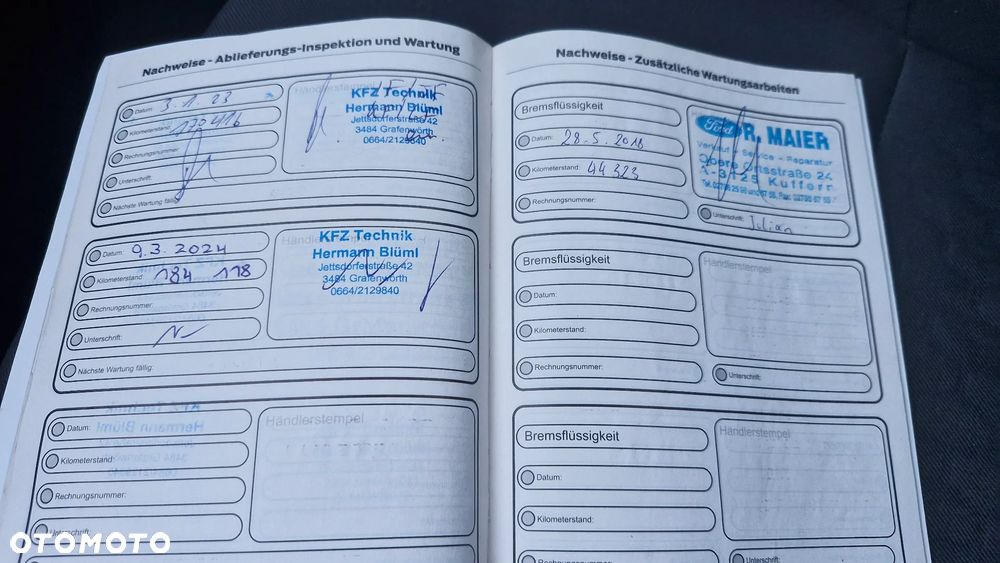 Nachweise - Ablieferungs-Inspektion und Wartung
Datum: 3.1.23
Kilometerstand: 170416
Rechnungsnummer:
Unterschrift:
Nächste Wartung fällig:
KFZ Technik
Hermann Blüml
Jettsdorferstraße 42
3484 Grafenwörth
0664/2129840
Datum: 9.3.2024
Kilometerstand: 184 118
Rechnungsnummer:
Unterschrift:
Nächste Wartung fällig:
KFZ Technik
Hermann Blüml
Jettsdorferstraße 42
3484 Grafenwörth
0664/2129840
Datum:
Kilometerstand:
Rechnungsnummer:
Unterschrift:
Händlerstempel
Nachweise - Zusätzliche Wartungsarbeiten
Bremsflüssigkeit
Datum: 28.5.2018
Kilometerstand: 44323
Rechnungsnummer:
Ford R. MAIER
Verkauf - Service - Reparatur
Obere Ortsstraße 24
A-3125 Kuffern
Unterschrift: Julian
Bremsflüssigkeit
Datum:
Kilometerstand:
Rechnungsnummer:
Händlerstempel
Unterschrift:
Bremsflüssigkeit
Datum:
Kilometerstand:
Rechnungsnummer:
Händlerstempel
Unterschrift:
OTOMOTO